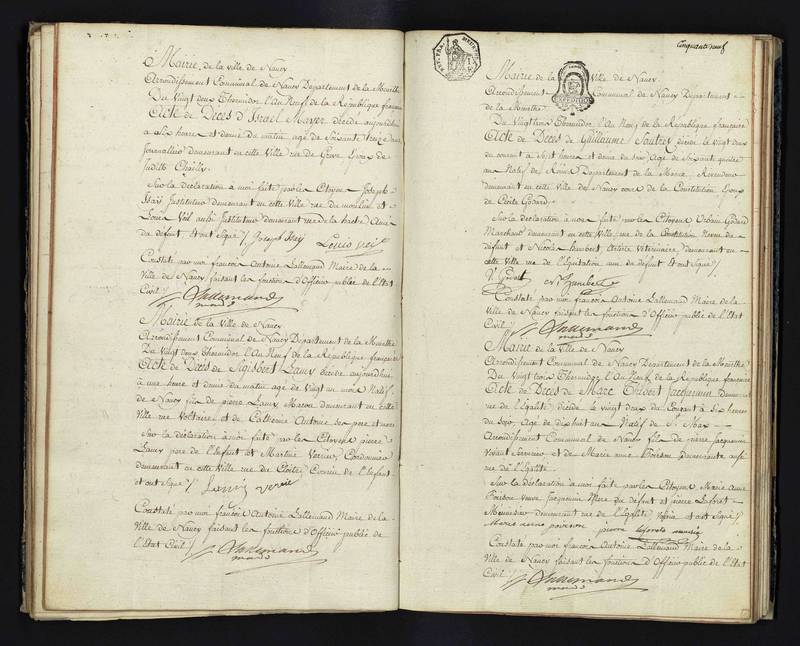 Mairie de la ville de Nancy
Arrondissement Communal de Nancy Departement de la Meurthe
Du vingt deux Thermidor l'An Neuf de la République française
Acte de Deces d'Israel Mayer décédé aujourdhui
a six heure et demie du matin agé de Soixante treize ans
Journallier demeurant en cette Ville rue de Greve Epoux de
Judith
Sur la déclaration à moi faite par les Citoyens Joseph
Instituteur demeurant en cette Ville rue du moulin et
Louis Veil aussi Instituteur demeurant rue de la hache Amis
du défunt. et ont signé / Joseph
Constaté par moi françois Antoine Lallemand Maire de la
Ville de Nancy faisant les fonctions d'Officier public de l'Etat
Civil / Lallemand
maire
Mairie de la Ville de Nancy
Arrondissement Communal de Nancy Departement de la Meurthe
Du vingt deux thermidor l'An Neuf de la République française
Acte de Deces de Sigisbert Lamy décédé aujourdhui
a une heure et demie du matin agé de vingt un mois Natif
de Nancy fils de pierre Lamy Macon demeurant en cette
Ville rue Voltaire et de Catherine Antoine ses pere et mere
Sur la déclaration à moi faite par les Citoyens pierre
Lamy pere de l'Enfant et Martine Cordonnier
demeurant en cette Ville rue du Cloitre de l'Enfant
et ont signé / Lamy
Constaté par moi françois Antoine Lallemand Maire de la
Ville de Nancy faisant les fonctions d'Officier public de
l'Etat Civil / Lallemand
maire
Cinquante neuf
Mairie de la Ville de Nancy
Arrondissement Communal de Nancy Departement
de la Meurthe
Du vingt trois Thermidor l'An Neuf de la République française
Acte de Deces de Guillaume Soutrez décédé le vingt deux
du courant à Sept heures et demie du soir Agé de Soixante quinze
ans Natif de Departement de la Marne,
demeurant en cette Ville de Nancy rue de la Constitution Epoux
de Cécile Godard
Sur la déclaration à moi faite par les Citoyens Urbain Godard
Marchand demeurant en cette Ville, rue de la Constitution Neveu du
défunt et Nicolas Lambert Artiste Vétérinaire demeurant en
cette Ville rue de l'Equitation ami du défunt Et ont signé /
Constaté par moi françois Antoine Lallemand Maire de la
Ville de Nancy faisant les fonctions d'Officier public de l'Etat
Civil / Lallemand
maire
Mairie de la Ville de Nancy
Arrondissement Communal de Nancy Departement de la Meurthe
Du Vingt trois Thermidor l'An Neuf de la République française
Acte de Deces de Marc Jacquemin demeurant
rue de l'Egalité décédé le vingt deux du Courant à Six heures
du Soir, Age de dix huit ans Natif de St Max
Arrondissement Communal de Nancy fils de pierre Jacquemin
Vivant et de Marie anne Poirson demeurante aussi
rue de l'Egalité
Sur la déclaration à moi faite par les Citoyens Marie Anne
Poirson Veuve Jacquemin Mere du défunt et pierre
Menuisier demeurant rue de l'Egalité et ont signé /
Marie anne poirson pierre
Constaté par moi françois Antoine Lallemand Maire de la
Ville de Nancy faisant les fonctions d'Officier public de l'Etat
Civil / Lallemand
maire